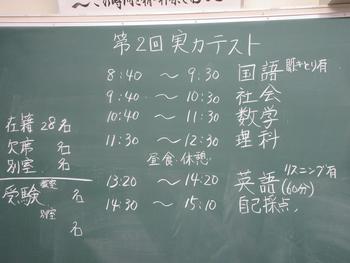 第2回実力テスト
8:40 ～ 9:30 国語 聞きとり有
9:40 ～ 10:30 社会
10:40 ～ 11:30 数学
11:30 ～ 12:30 理科
昼食・休憩
13:20 ～ 14:20 英語 リスニング有 (60分)
14:30 ～ 15:10 自己採点
在籍 28名
欠席 名
別室 名
受験 教室 名
別室 名